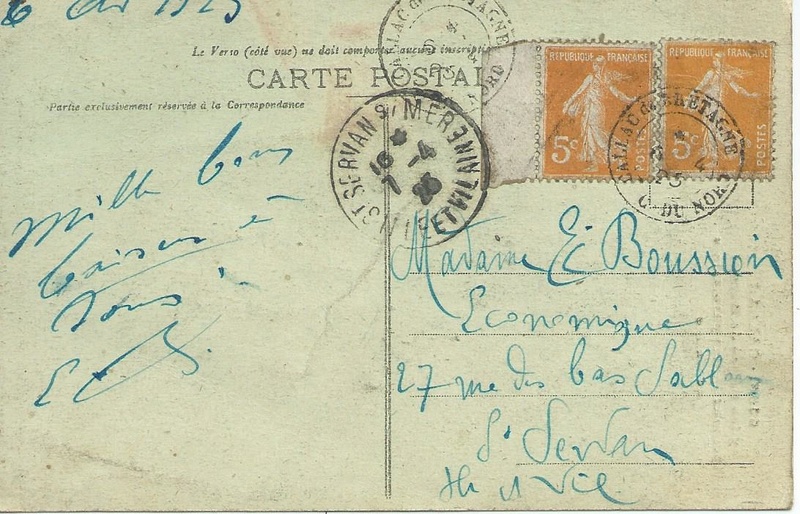 1925
Le Verso (côté vue) ne doit comporter aucune inscription
CARTE POSTALE
Partie exclusivement réservée à la Correspondance
Mille bons
baisers à
tous
CALLAC de BRETAGNE
25
C. DU NORD
ST SERVAN S/ MER
ILLE ET VILAINE
REPUBLIQUE FRANÇAISE
5c
POSTES
REPUBLIQUE FRANÇAISE
5c
POSTES
CALLAC de BRETAGNE
25
C. DU NORD
Madame E Boussion
Economique
27 rue des bas Sablons
St Servan
Ille et Vil